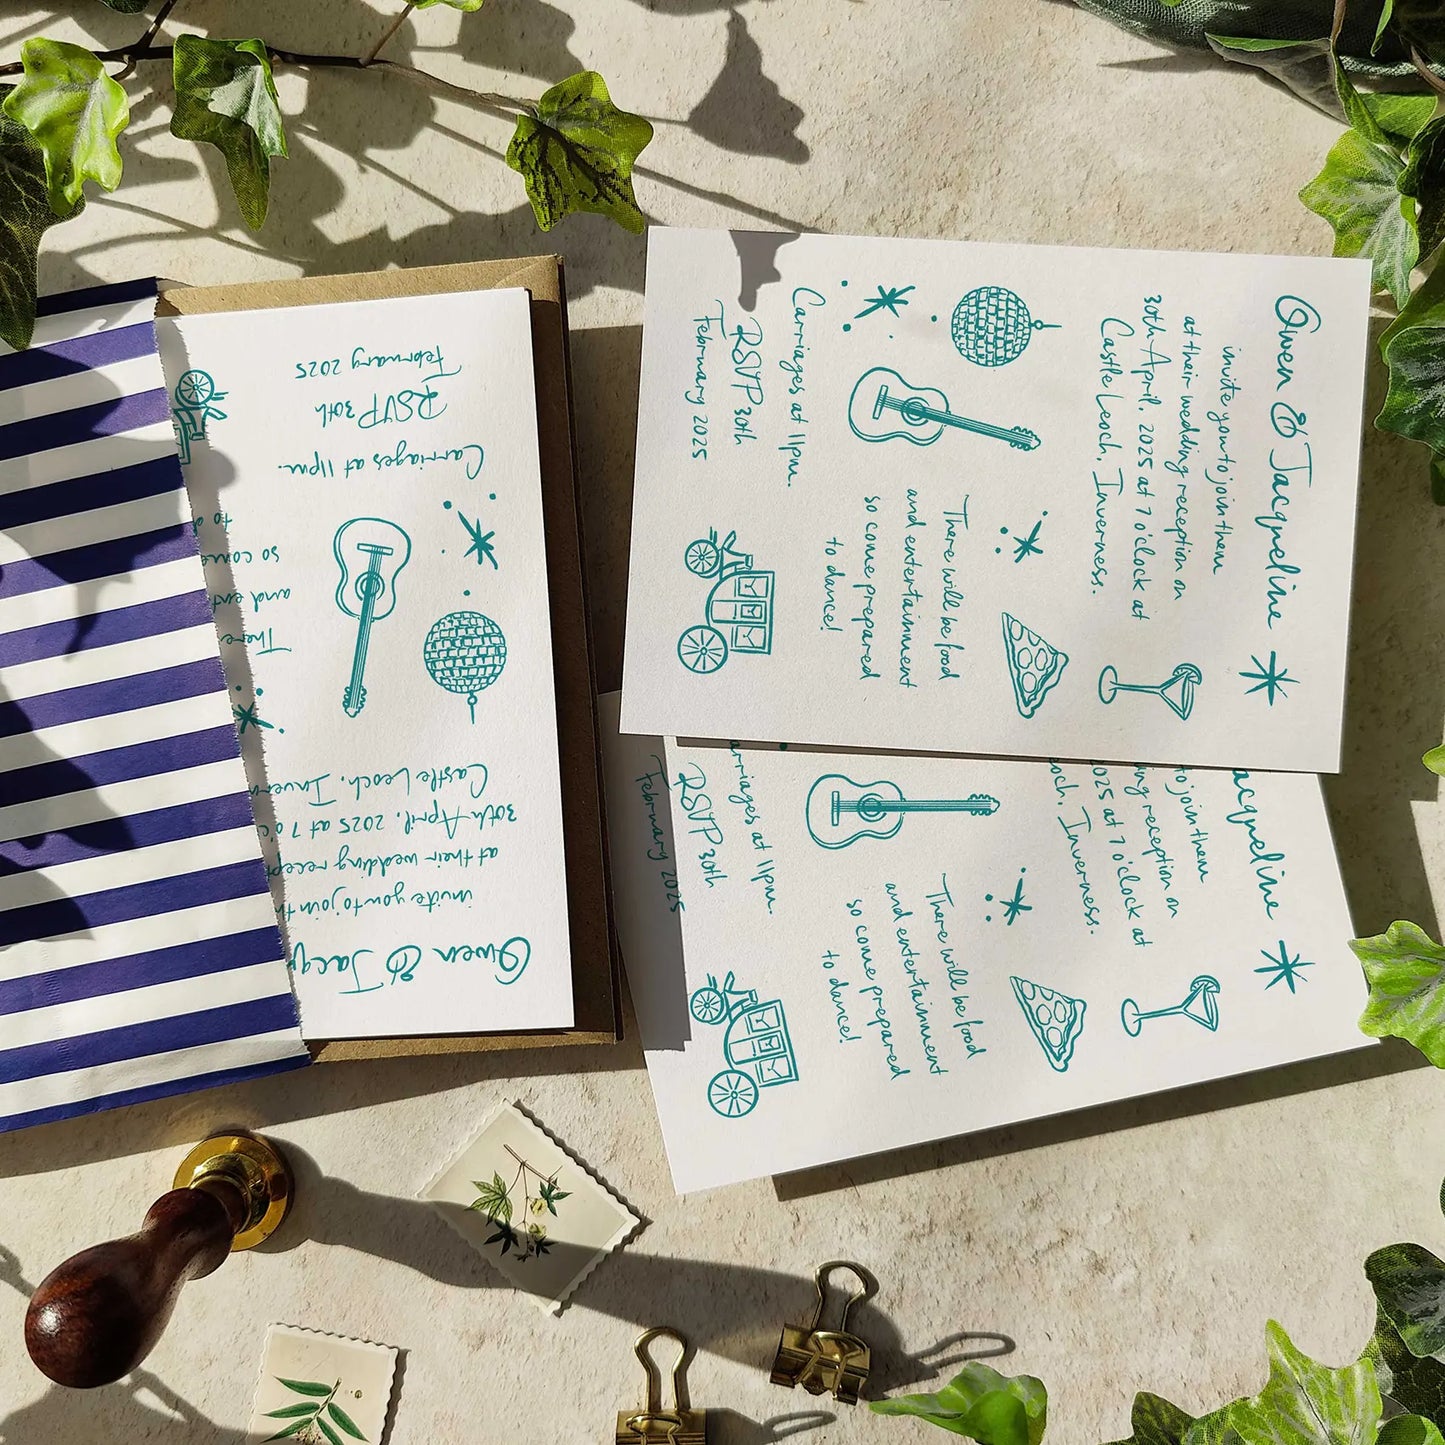 Owen & Jacqueline
invite you to join them
at their wedding reception on
30th April, 2025 at 7 o'clock at
Castle Leoch, Inverness.
There will be food
and entertainment
so come prepared
to dance!
Carriages at 11pm.
RSVP 30th
February 2025
acqueline
to join them
ing reception on
2025 at 7 o'clock at
och, Inverness.
There will be food
and entertainment
so come prepared
to dance!
arriages at 11pm.
RSVP 30th
February 2025
Owen & Jacq
invite you to join th
at their wedding recept
30th April, 2025 at 7 o'c
Castle Leoch, Invern
There
and ent
so come
to d
Carriages at 11pm.
RSVP 30th
February 2025